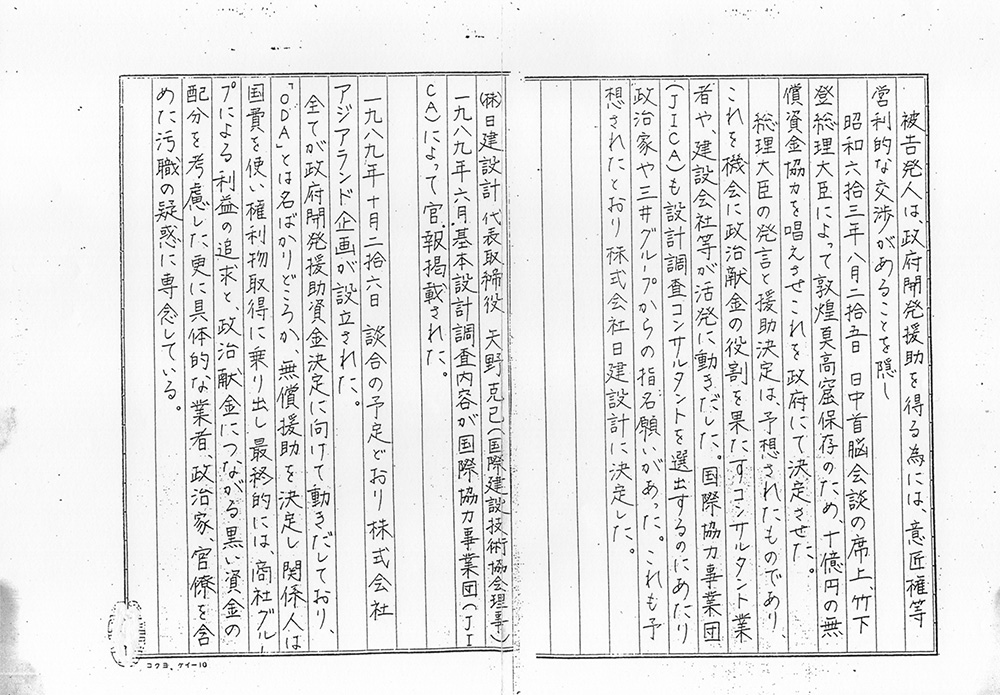 被告発人は、政府開発援助を得る為には、意匠権等
営利的な交渉があることを隠し
昭和六拾三年八月二拾五日 日中首脳会談の席上、竹下
登総理大臣によって敦煌莫高窟保存のため、十億円の無
償資金協力を唱えさせこれを政府にて決定させた。
総理大臣の発言と援助決定は予想されたものであり、
これを機会に政治献金の役割を果たすコンサルタント業
者や、建設会社等が活発に動きだした。国際協力事業団
(JICA)も設計調査コンサルタントを選出するのにあたり
政治家や三井グループからの指名願いがあった。これも予
想されたとおり株式会社日建設計に決定した。
㈱日建設計 代表取締役 矢野克巳(国際建設技術協会理事)
一九八九年六月.基本設計調査内容が国際協力事業団(JI
CA)によって官.報掲載された。
一九八九年十月二拾六日 談合の予定どおり株式会社
アジアランド企画が設立された。
全てが政府開発援助資金決定に向けて動きだしており、
「ODA」とは名ばかりどころか、無償援助を決定し関係人は
国費を使い権利物取得に乗り出し最終的には、商社グルー
プによる利益の追求と、政治献金につながる黒い資金の
配分を考慮した更に具体的な業者、政治家、官僚を含
めた汚職の疑惑に専念している。
コクヨ、ケイー10